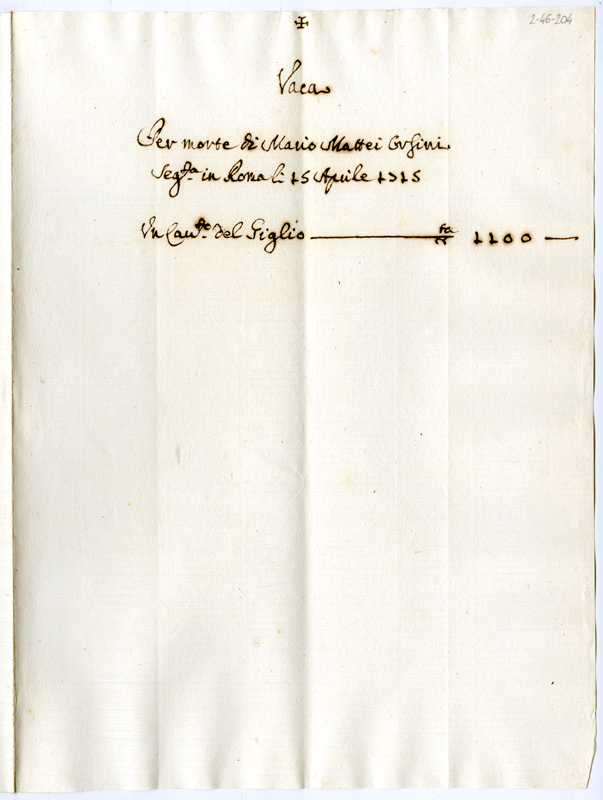 ✠
2-46-204
Vaca
Per morte di Mario Mattei Orsini
Seg.ta in Roma li 15 Aprile 1715
Un Cau.to del Giglio ——— 1100 —